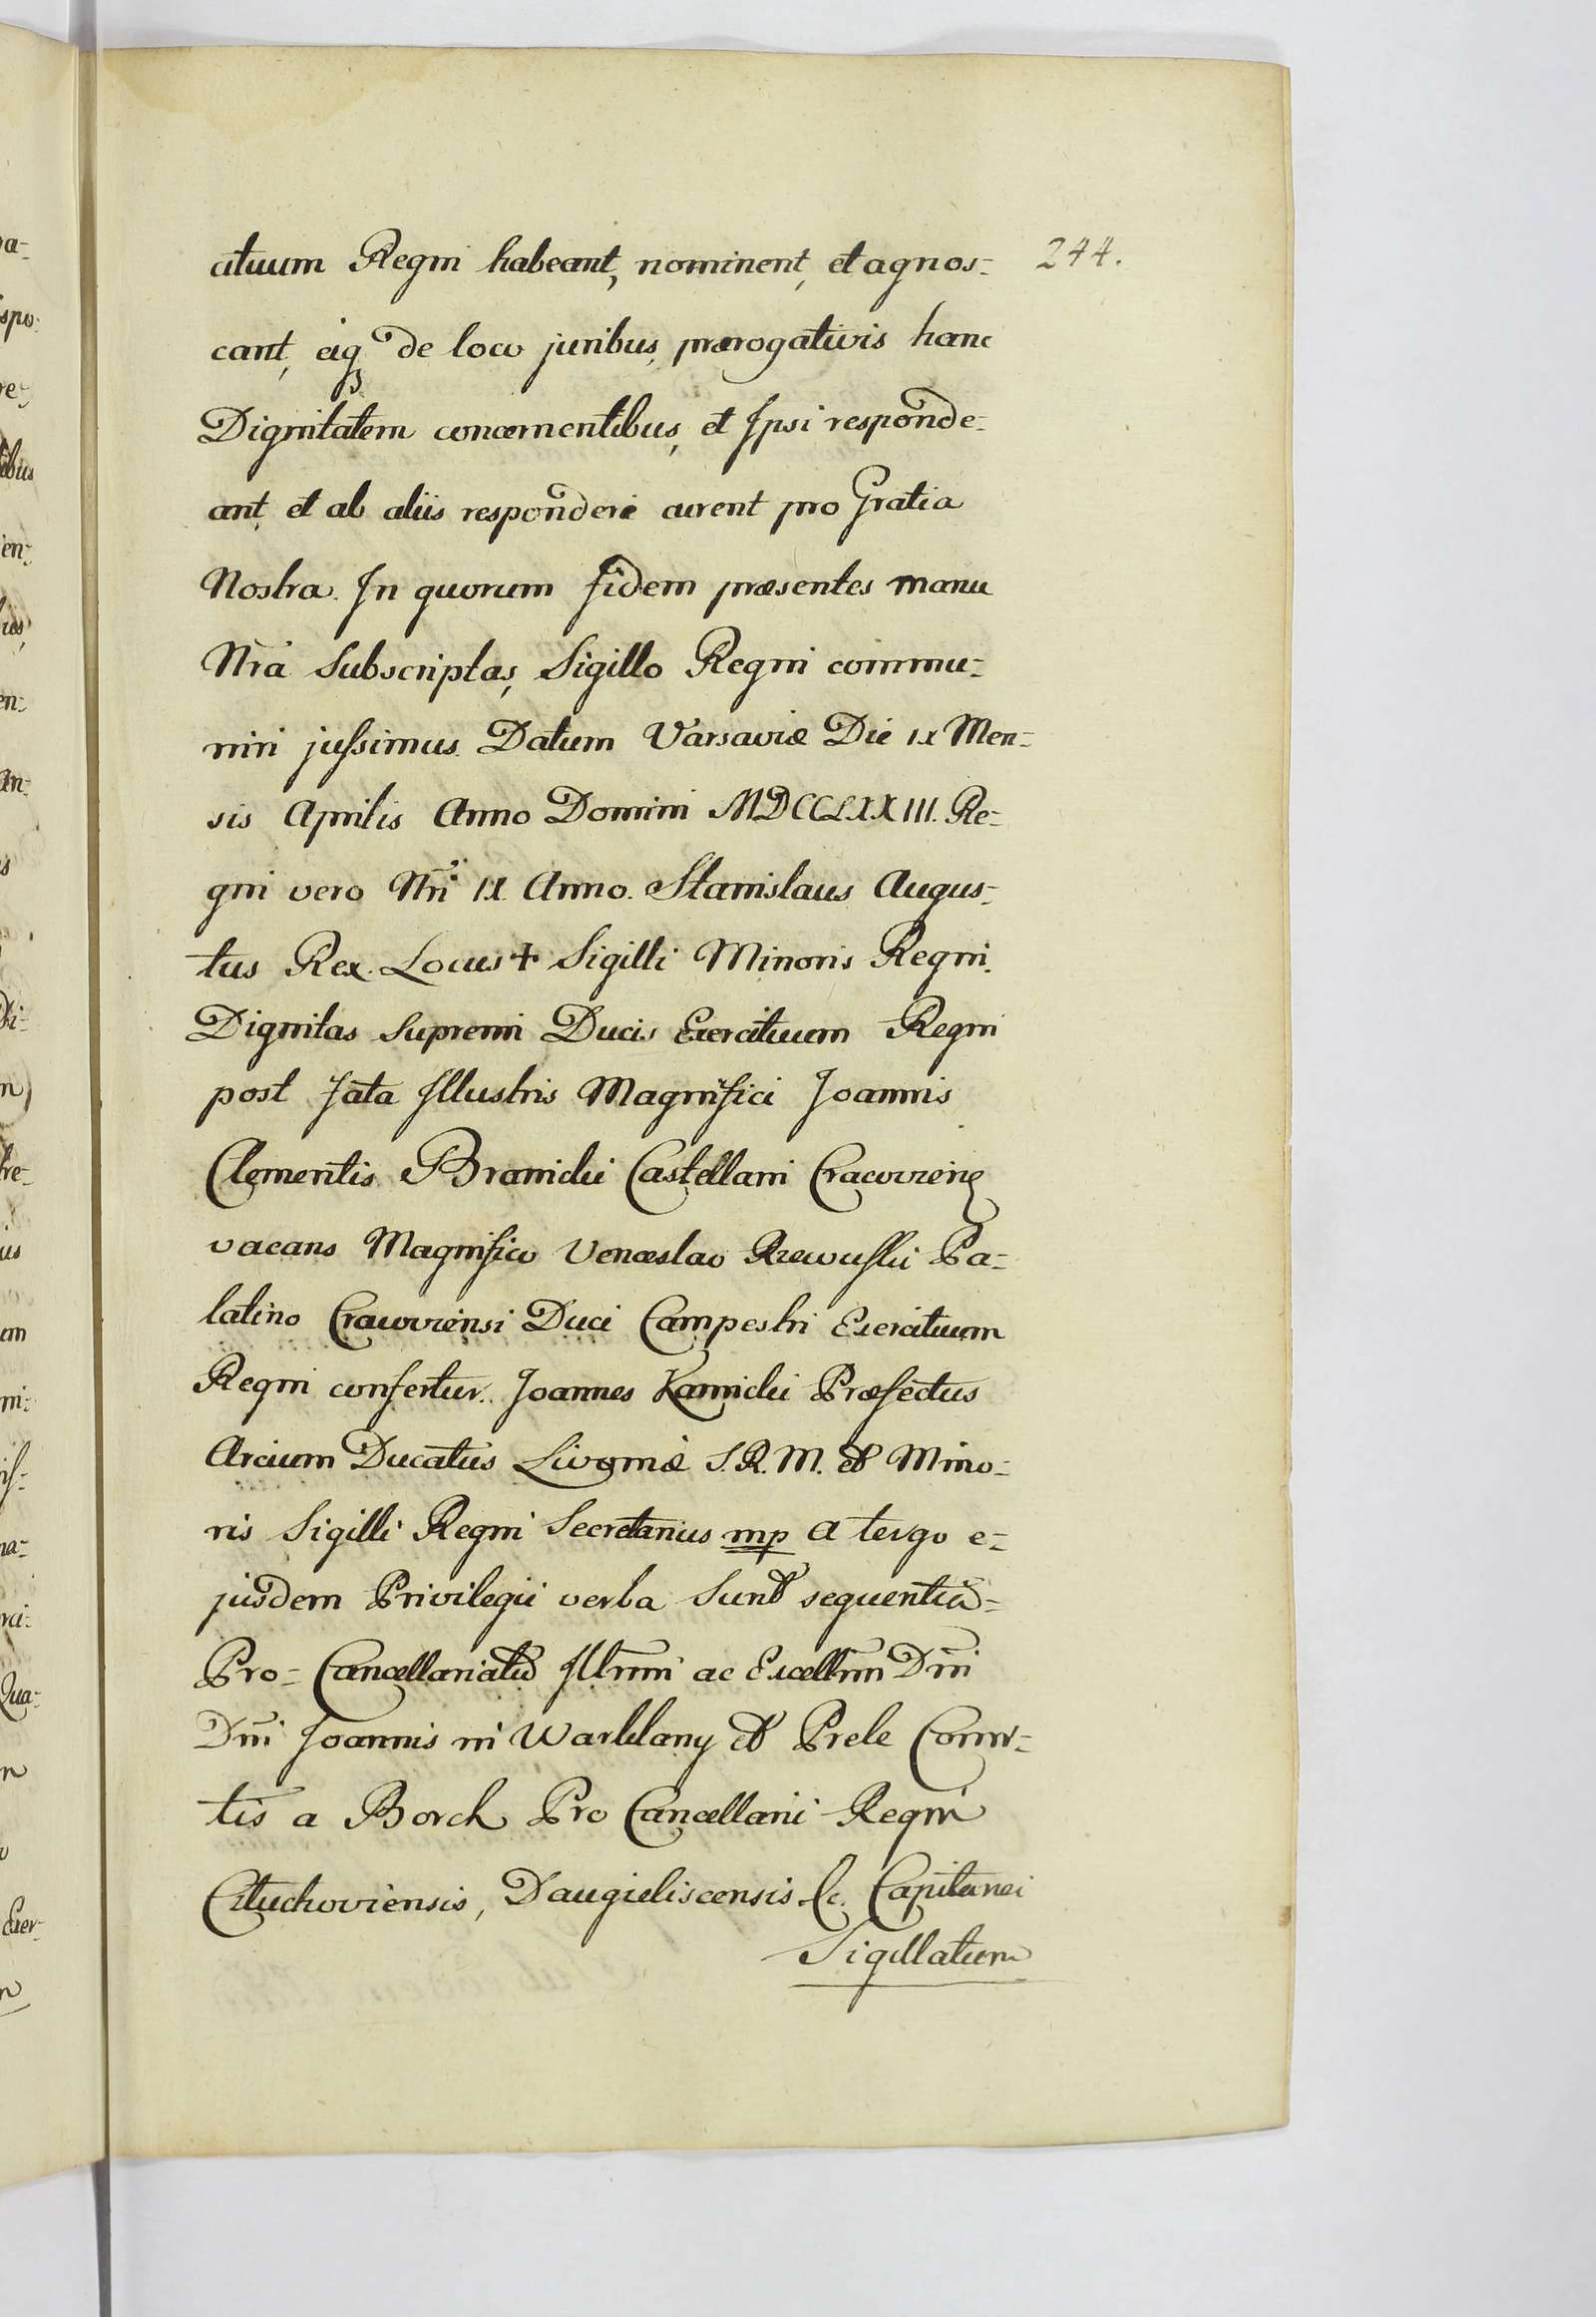 244.
cituum Regni habeant, nominent, et agnos-
cant, eiq3 de loco juribus, prærogativis hanc
Dignitatem concernentibus, et Ipsi responde-
ant, et ab aliis responderi curent pro Gratia
Nostra. In quorum fidem præsentes manu
Nrã Subscriptas, Sigillo Regni commu-
niri jussimus. Datum Varsaviæ Die IX Men-
sis Aprilis Anno Domini MDCCLXXIII. Re-
gni vero Nri IX. Anno. Stanislaus Augus-
tus Rex. Locus + Sigilli Minoris Regni.
Dignitas Supremi Ducis Exercituum Regni
post fata Illustris Magnifici Joannis
Clementis Branicki Castellani Cracovien
vacans Magnifico Venceslao Rzewuski Pa-
latino Cracoviensi Duci Campestri Exercituum
Regni confertur. Joannes Kamicki Præfectus
Arcium Ducatus Livoniæ S. R. M. et Mino-
ris Sigilli Regni Secretarius mp A tergo e-
jusdem Privilegii verba Sunt sequentia-
Pro-Cancellariatu Illrmi ac Excellmi Dni
Dni Joannis in Warklany et Prele Comi-
tis a Borch Pro Cancellarii Regni
Lituchoviensis, Daugieliscensis &c. Capitanei
Sigillatum